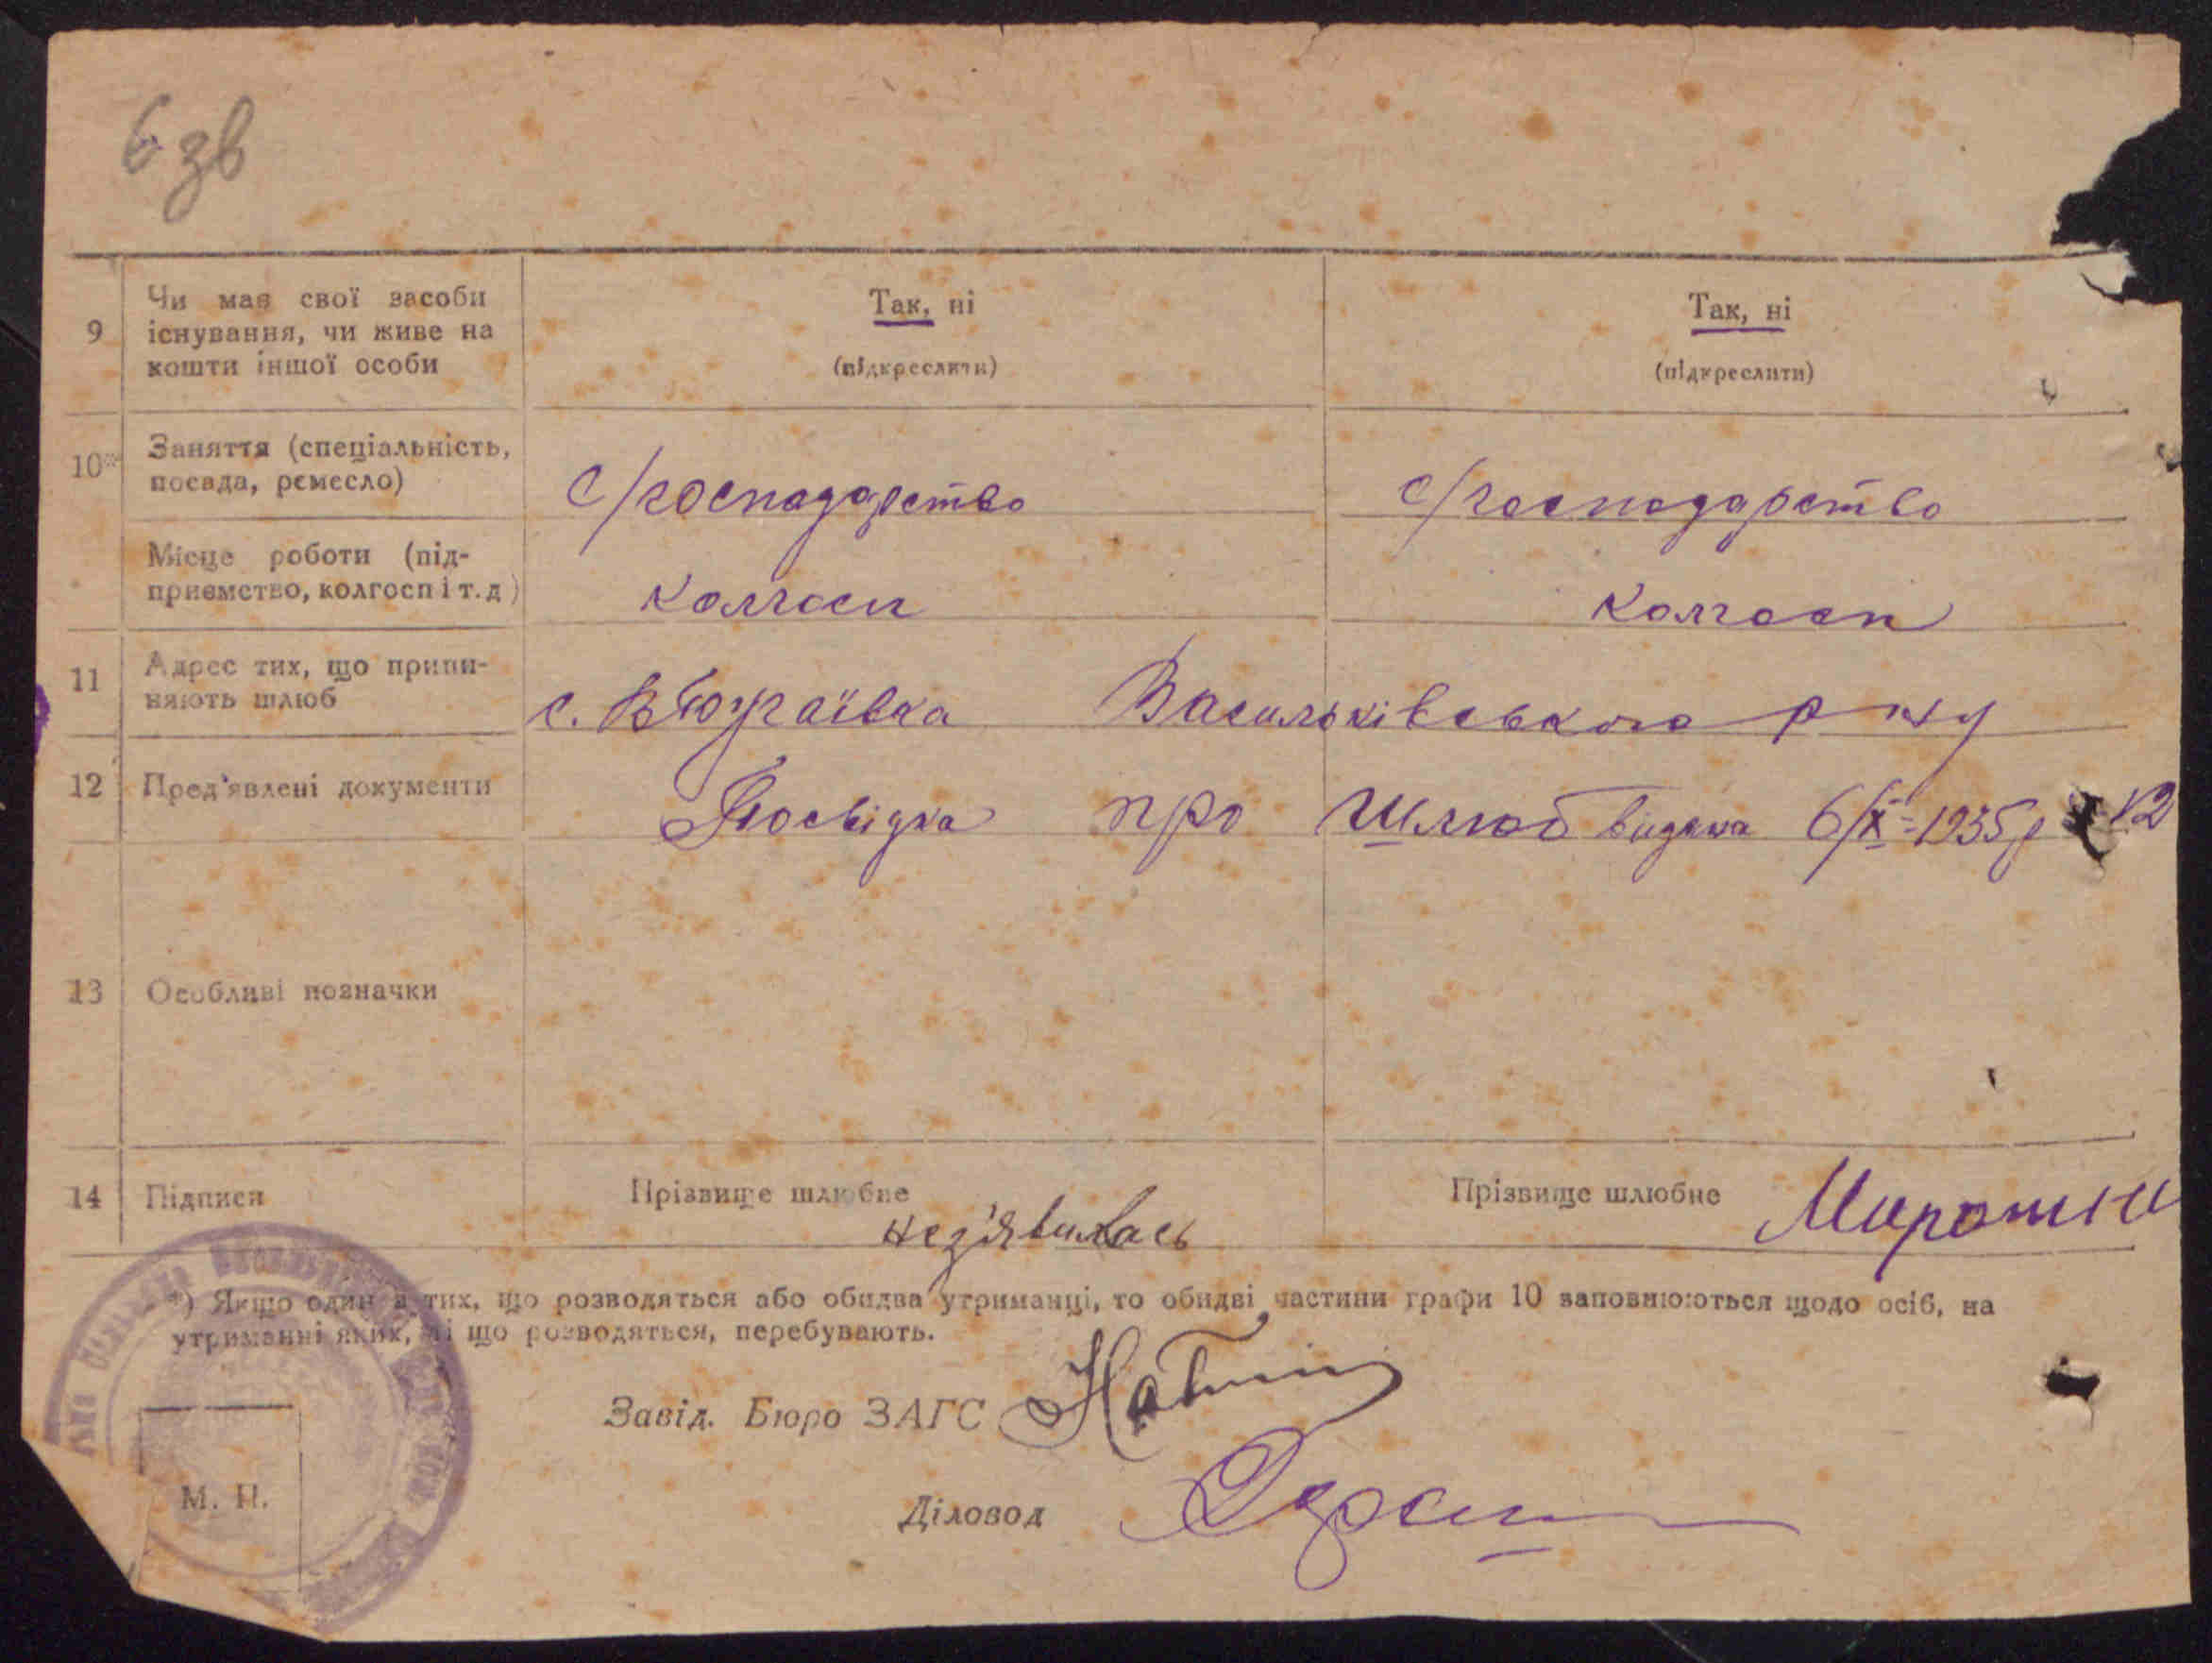 6 зв
9 Чи має свої засоби Так, ні Так, ні
існування, чи живе на
кошти іншої особи (підкреслити) (підкреслити)
10* Заняття (спеціальність,
посада, ремесло) с/господарство с/господарство
Місце роботи (під-
приємство, колгосп і т. д) колгосп колгосп
11 Адрес тих, що припи-
няють шлюб с. Васильківського р-ну
12 Пред'явлені документи Посвідка про шлюб видана 6/ІХ-1935р
13 Особливі позначки
14 Підписи Прізвище шлюбне нез'явилась Прізвище шлюбне
*) Якщо один з тих, що розводяться або обидва утриманці, то обидві частини графи 10 заповнюються щодо осіб, на
утриманні яких, ті що розводяться, перебувають.
Завід. Бюро ЗАГС
Діловод
М. П.